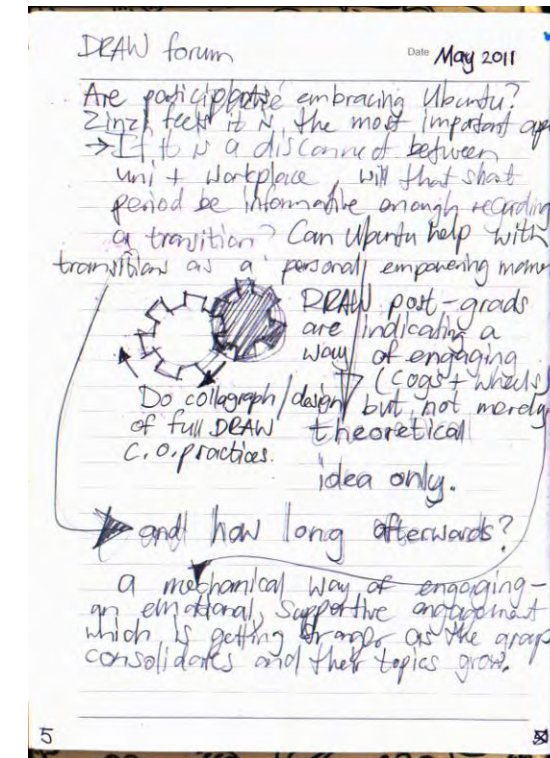 DRAW forum
Date May 2011
Are participants embracing Ubuntu?
Zinzi feels it is the most important
→ If it is a disconnect between
uni + workplace, will that short
period be informative enough regarding
a transition? Can Ubuntu help with
transitions as a personal, empowering
DRAW post-grads
are indicating a
way of engaging
(cogs + wheels)
but not merely
theoretical
idea only.
Do collagraph/design
of full DRAW
C.O.practices.
and how long afterwards?
a mechanical way of engaging -
an emotional, supportive engagement
which is getting stronger as the group
consolidates and their topics grow.
5